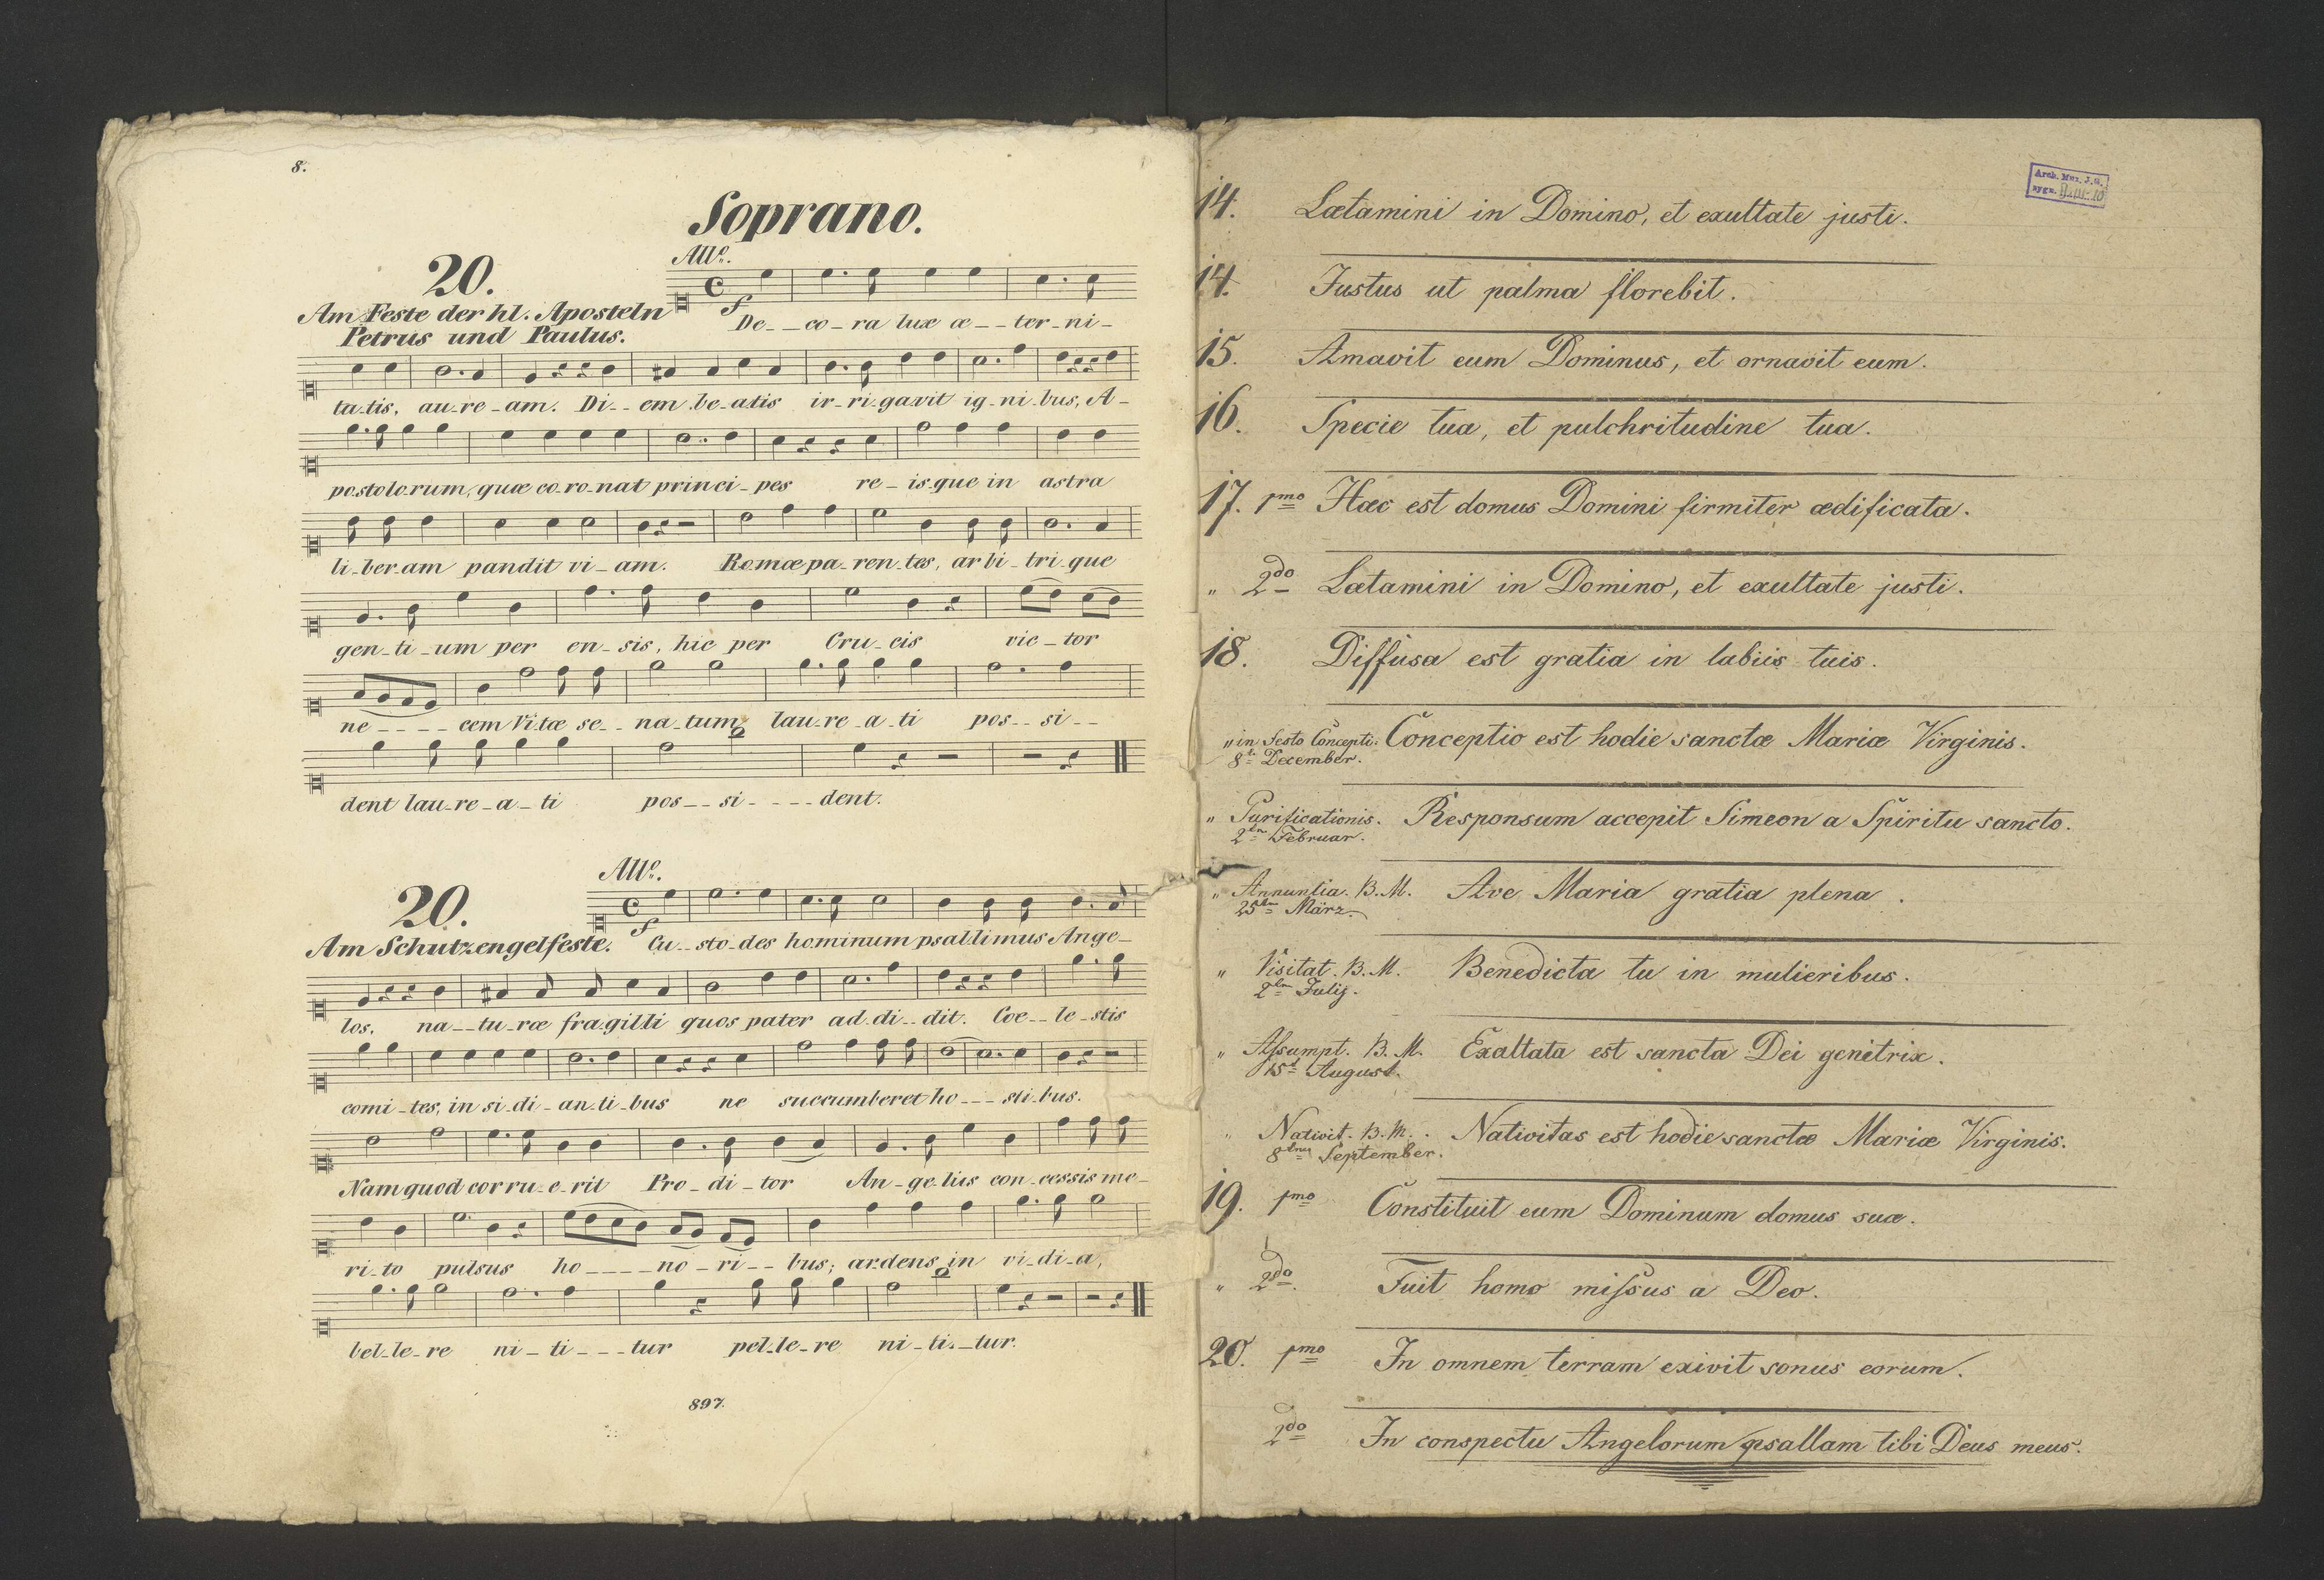 8.
Soprano.
20.
Am Feste der hl. Aposteln
Petrus und Paulus.
Allo.
C
f
De__co_ra lux æ__ter_ni_
ta_tis, au_re_am. Di__em be_atis ir_ri_gavit ig_ni_bus, A_
postolo_rum, quæ co_ro_nat princi_pes re_is_que in astra
li_ber_am pandit vi_am. Romæ pa_ren_tes, ar bi_tri_que
gen_ti_um per en_sis, hic per Cru_cis vic_tor
ne____cem Vi_tæ se__na_tum lau_re_a_ti pos__si__
dent lau_re_a_ti pos__si____dent.
20.
Am Schutzengelfeste.
Allo.
C
f
Cu__sto_des hominum psallimus Ange_
los, na__tu_ræ fragilli quos pater ad_di__dit. Coe__le_stis
comi_tes, in si_di_an_ti_bus ne succumberet ho___sti_bus.
Nam quod cor ru_e_rit Pro_di_tor An_ge_lius con_cessis me_
ri_to pulsus ho____no_ri__bus; ardens in vi_di_a,
bel_le_re ni_ti___tur pel_le_re ni_ti__tur.
897.
Arch. Muz. J.G.
sygn.
14. Lætamini in Domino, et exultate justi.
14. Justus ut palma florebit.
15. Amavit eum Dominus, et ornavit eum.
16. Specie tua, et pulchritudine tua.
17. 1mo Hæc est domus Domini firmiter ædificata.
" 2do Lætamini in Domino, et exultate justi.
18. Diffusa est gratia in labiis tuis.
" in Festo Concepti: Conceptio est hodie sanctæ Mariæ Virginis.
8t December.
" Purificationis. Responsum accepit Simeon a Spiritu sancto.
2ten Februar.
" Annuntia. B. M. Ave Maria gratia plena.
25ten März.
" Visitat. B. M. Benedicta tu in mulieribus.
2ten Julij.
" Aſsumpt. B. M. Exaltata est sancta Dei genitrix.
15t August.
" Nativit. B. M. Nativitas est hodie sanctæ Mariæ Virginis.
8ten September.
19. 1mo Constituit eum Dominum domus suæ.
" 2do Fuit homo miſsus a Deo.
20. 1mo In omnem terram exivit sonus eorum.
2do In conspectu Angelorum psallam tibi Deus meus.